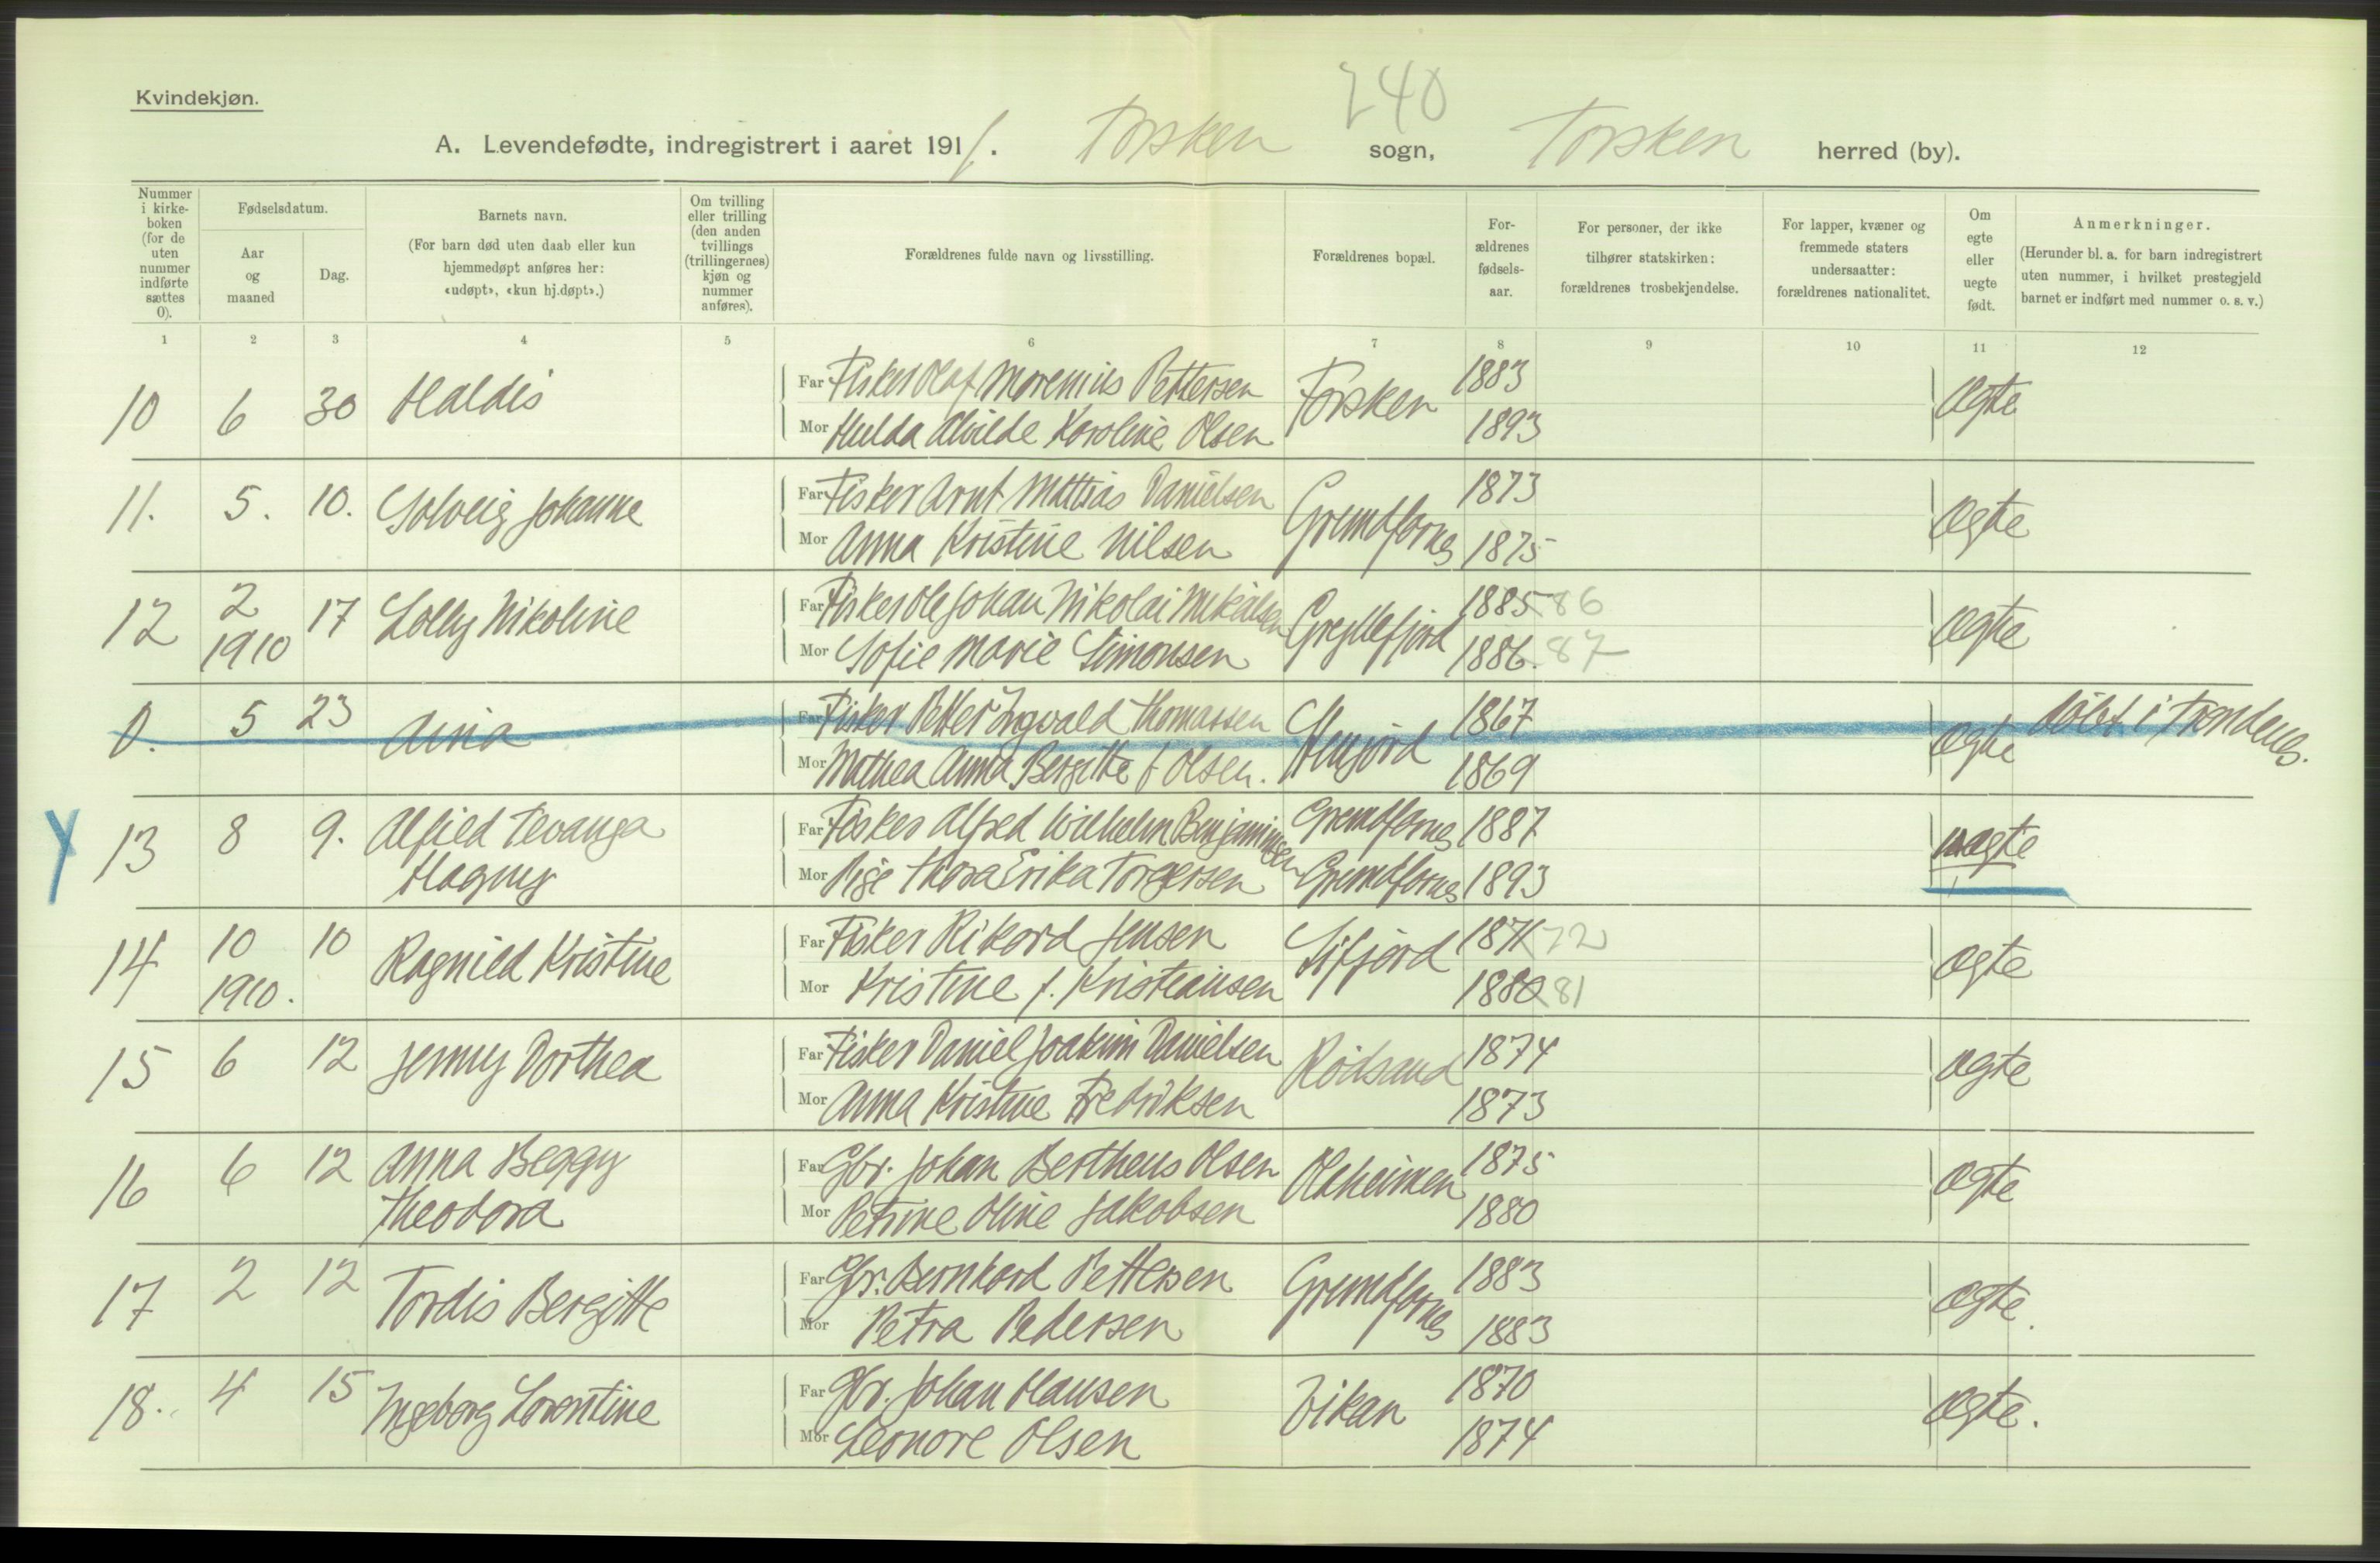 240
Kvindekjøn.
A. Levendefødte, indregistrert i aaret 1911. Torsken sogn, Torsken herred (by).
Nummer i kirke-boken (for de uten nummer indførte sættes 0).
Fødselsdatum.
Aar og maaned
Dag.
Barnets navn.
(For barn død uten daab eller kun hjemmedøpt anføres her: «udøpt», «kun hj.døpt».)
Om tvilling eller trilling (den anden tvillings (trillingernes) kjøn og nummer anføres).
Forældrenes fulde navn og livsstilling.
Forældrenes bopæl.
For-ældrenes fødsels-aar.
For personer, der ikke tilhører statskirken: forældrenes trosbekjendelse.
For lapper, kvæner og fremmede staters undersaatter: forældrenes nationalitet.
Om egte eller uegte født.
Anmerkninger.
(Herunder bl. a. for barn indregistrert uten nummer, i hvilket prestegjeld barnet er indført med nummer o. s. v.)
1 2 3 4 5 6 7 8 9 10 11 12
10 6 30 Haldis Far Fisker Olaf Morenius Pettersen Torsken 1883 Ægte
Mor Hulda Alvilde Karoline Olsen 1893
11. 5. 10. Solveig Johanne Far Fisker Arnt Mattias Danielsen Grundfarnes 1873 Ægte
Mor Anna Kristine Nilsen 1875
12 2 17 Lolly Nikoline Far Fisker Ole Johan Nikolai Mikalsen Gryllefjord 1885 86 Ægte
1910 Mor Sofie Marie Simonsen 1886. 87
0. 5 23 Aina Far Fisker Petter Ingvald Thomassen 1867 Ægte døbt i Trondenes.
Mor Mathea Anna Bergitte f. Olsen. 1869
13 8 9. Alfild Tevanga Far Fisker Alfred Wilhelm Benjaminsen Grundfarnes 1887 uægte
Magny Mor Pige Thora Erika Torgersen Grundfarnes 1893
14 10 10 Ragnild Kristine Far Fisker Rikard Jensen Sifjord 1871 72 Ægte
1910. Mor Kristine f. Kristiansen 1880 81
15 6 12 Jenny Dorthea Far Fisker Daniel Joakim Danielsen Rödsand 1874 Ægte
Mor Anna Kristine Fredriksen 1873
16 6 12 Anna Beggy Far Gbr. Johan Bertheus Olsen Olaheimen 1875 Ægte
Theodora Mor Petrine Oline Jakobsen 1880
17 2 12 Tordis Bergitte Far Gbr. Bernhard Pettersen Grundfarnes 1883 Ægte.
Mor Petra Pedersen 1883
18. 4 15 Ingeborg Lorentine Far Gbr. Johan Hansen Vikan 1870 Ægte.
Mor Leonore Olsen 1874